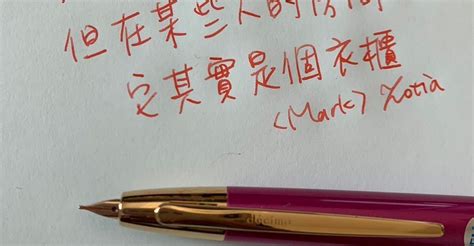 但在某些人的房間
它其實是個衣櫃
<Mark> Zotia
decimo